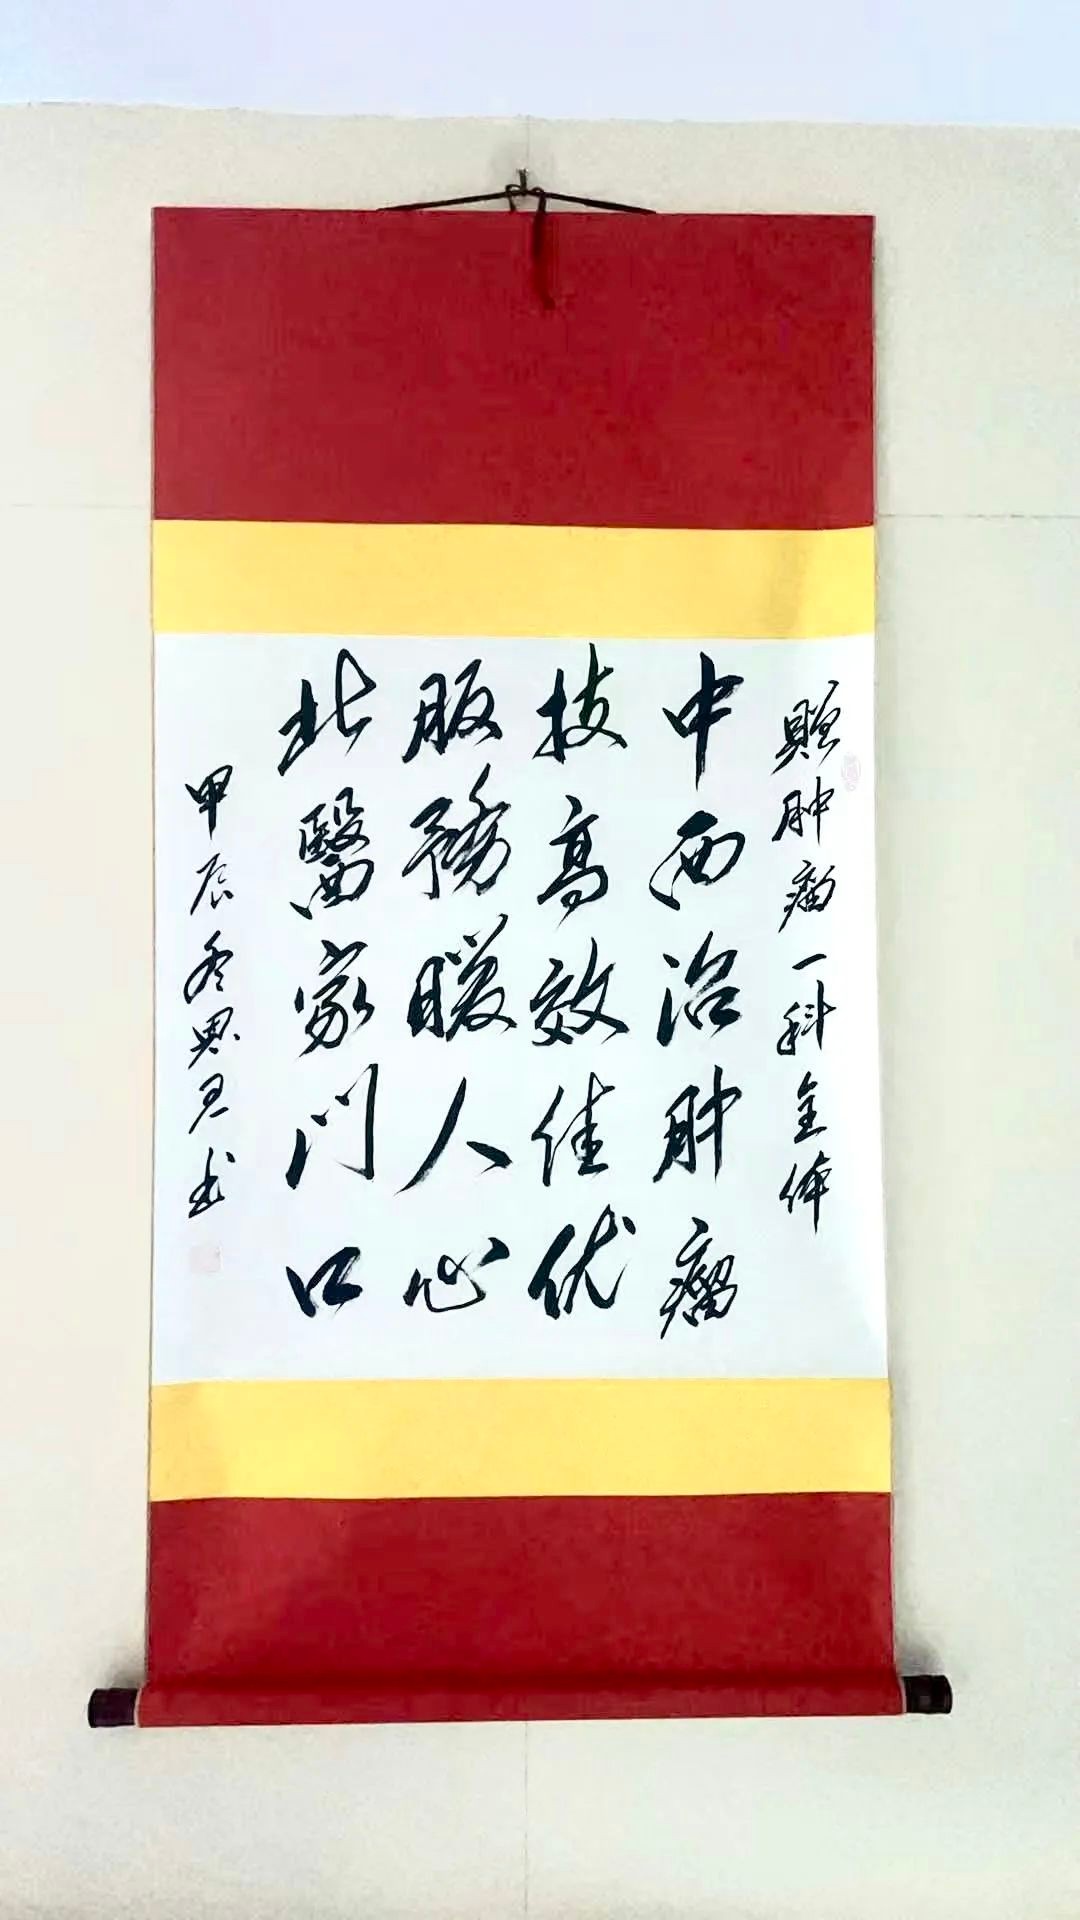 赠肿瘤一科全体
中西治肿瘤
技高效佳优
服務暖人心
北醫家门口
甲辰冬思君书